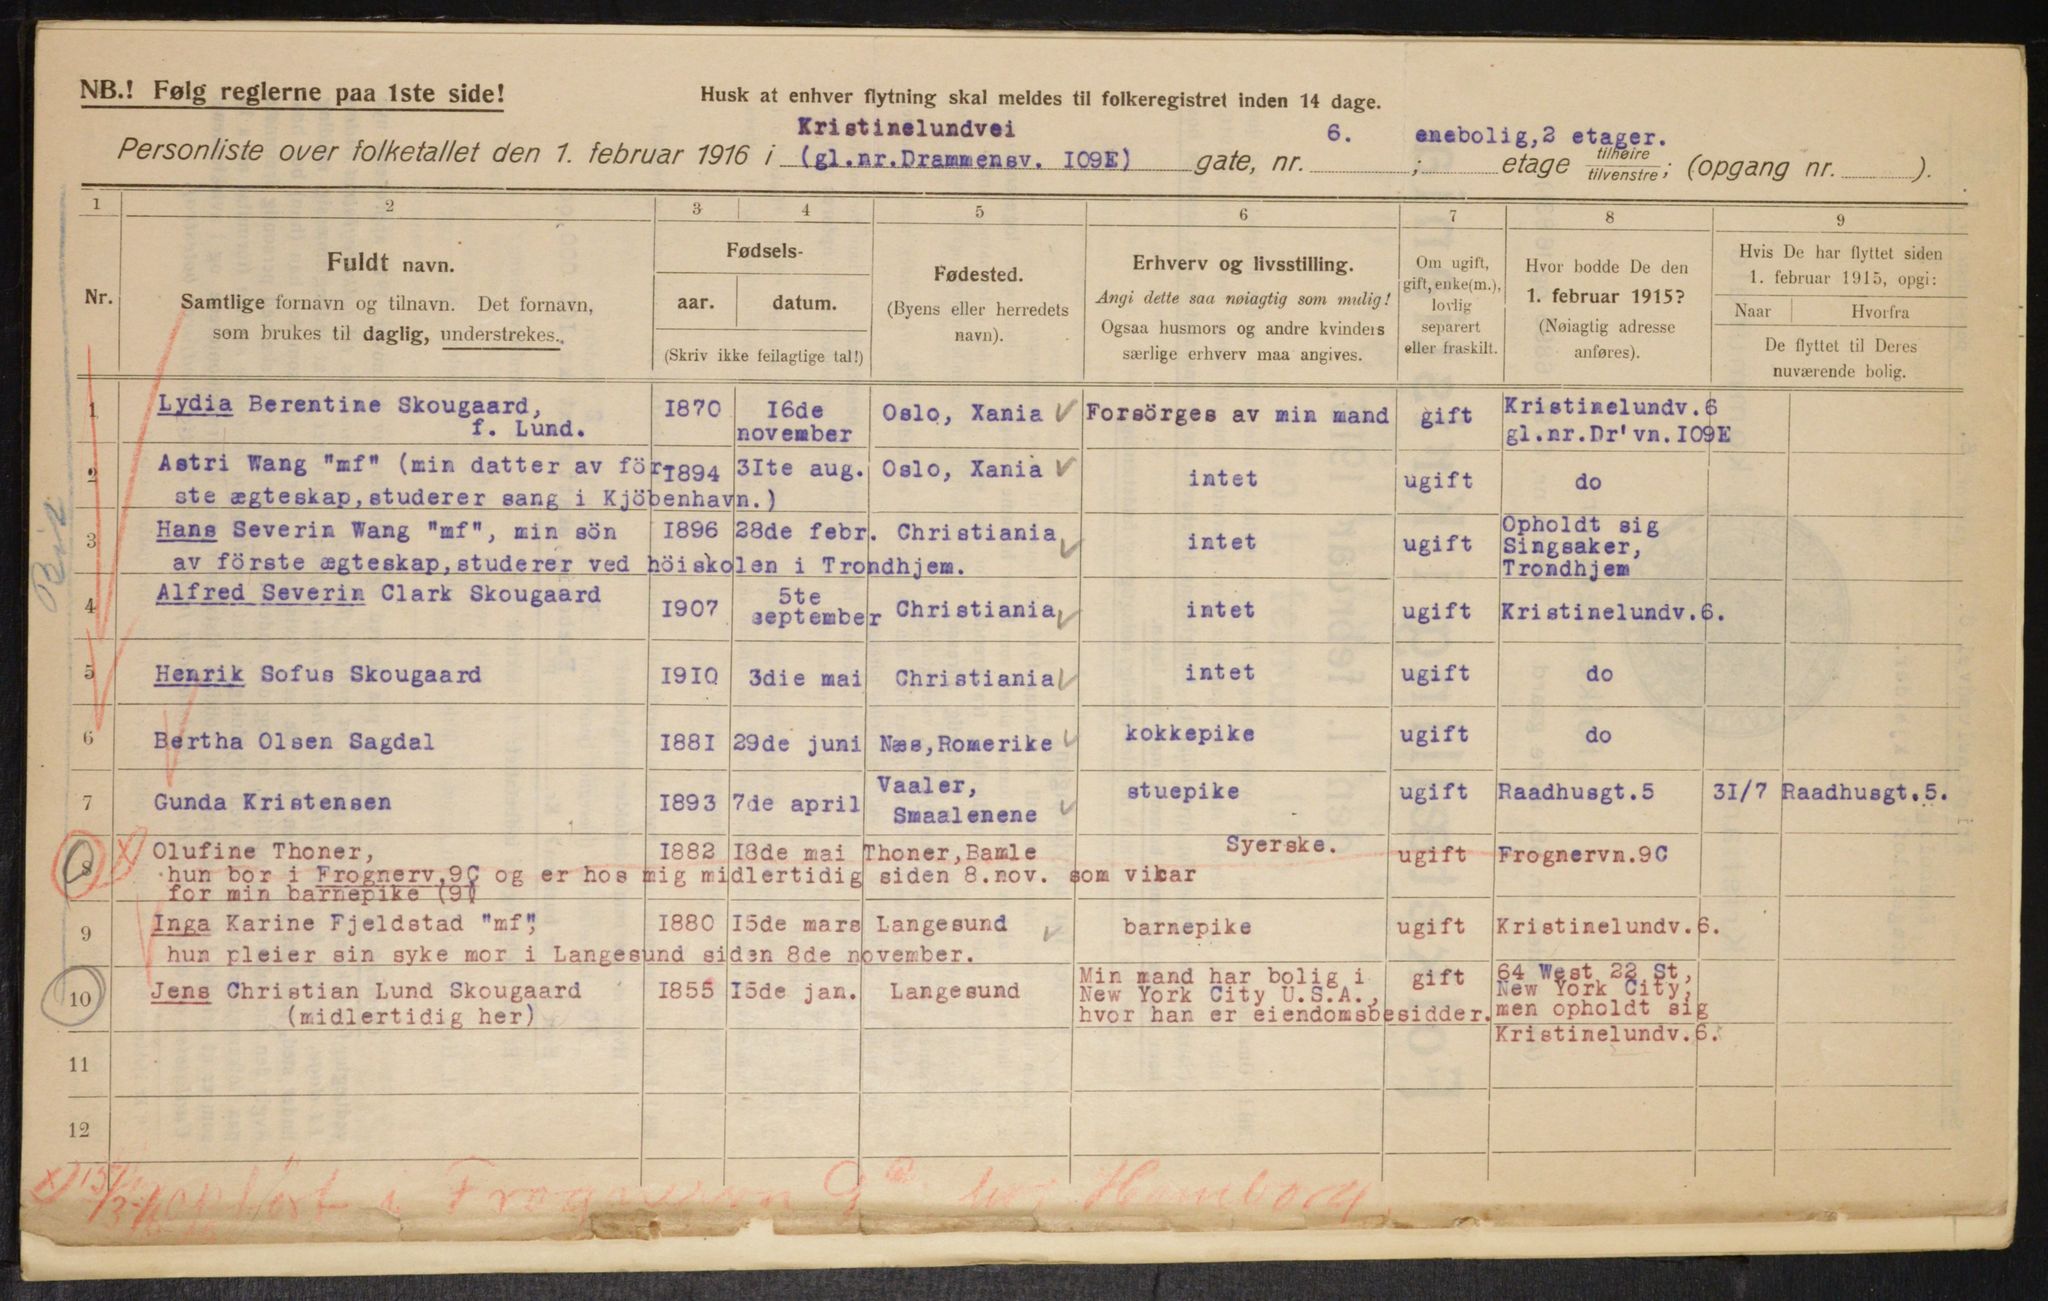 NB.! Følg reglerne paa 1ste side!
Husk at enhver flytning skal meldes til folkeregistret inden 14 dage.
Kristinelundvei 6. enebolig, 2 etager.
Personliste over folketallet den 1. februar 1916 i (gl.nr.Drammensv. I09E) gate, nr. ; etage tilhøire tilvenstre; (opgang nr. ).
1 2 3 4 5 6 7 8 9
Nr.
Fuldt navn.
Samtlige fornavn og tilnavn. Det fornavn,
som brukes til daglig, understrekes.
Fødsels-
aar. datum.
(Skriv ikke feilagtige tal!)
Fødested.
(Byens eller herredets
navn).
Erhverv og livsstilling.
Angi dette saa nøiagtig som mulig!
Ogsaa husmors og andre kvinders
særlige erhverv maa angives.
Om ugift,
gift, enke(m.),
lovlig
separert
eller fraskilt.
Hvor bodde De den
1. februar 1915?
(Nøiagtig adresse
anføres).
Hvis De har flyttet siden
1. februar 1915, opgi:
Naar Hvorfra
De flyttet til Deres
nuværende bolig.
1 Lydia Berentine Skougaard, I870 I6de Oslo, Xania Forsörges av min mand gift Kristinelundv.6
f. Lund. november gl.nr.Dr'vn.I09E
2 Astri Wang "mf" (min datter av för- I894 3Ite aug. Oslo, Xania intet ugift do
ste ægteskap,studerer sang i Kjöbenhavn.)
3 Hans Severin Wang "mf", min sön I896 28de febr. Christiania intet ugift Opholdt sig
Singsaker,
av förste ægteskap,studerer ved höiskolen i Trondhjem. Trondhjem
4 Alfred Severin Clark Skougaard I907 5te september Christiania intet ugift Kristinelundv.6.
5 Henrik Sofus Skougaard I9I0 3die mai Christiania intet ugift do
6 Bertha Olsen Sagdal I88I 29de juni Næs,Romerike kokkepike ugift do
7 Gunda Kristensen I893 7de april Vaaler, Smaalenene stuepike ugift Raadhusgt.5 3I/7 Raadhusgt.5.
8 Olufine Thoner, I882 I8de mai Thoner,Bamle Syerske. ugift Frognervn.9C
hun bor i Frognerv.9C og er hos mig midlertidig siden 8.nov. som vikar
for min barnepike (9)
9 Inga Karine Fjeldstad "mf", I880 I5de mars Langesund barnepike ugift Kristinelundv.6.
hun pleier sin syke mor i Langesund siden 8de november.
10 Jens Christian Lund Skougaard I855 I5de jan. Langesund Min mand har bolig i gift 64 West 22 St,
New York City U.S.A., New York City,
(midlertidig her) hvor han er eiendomsbesidder. men opholdt sig
Kristinelundv.6.
11
12
opført i Frognerveien 9